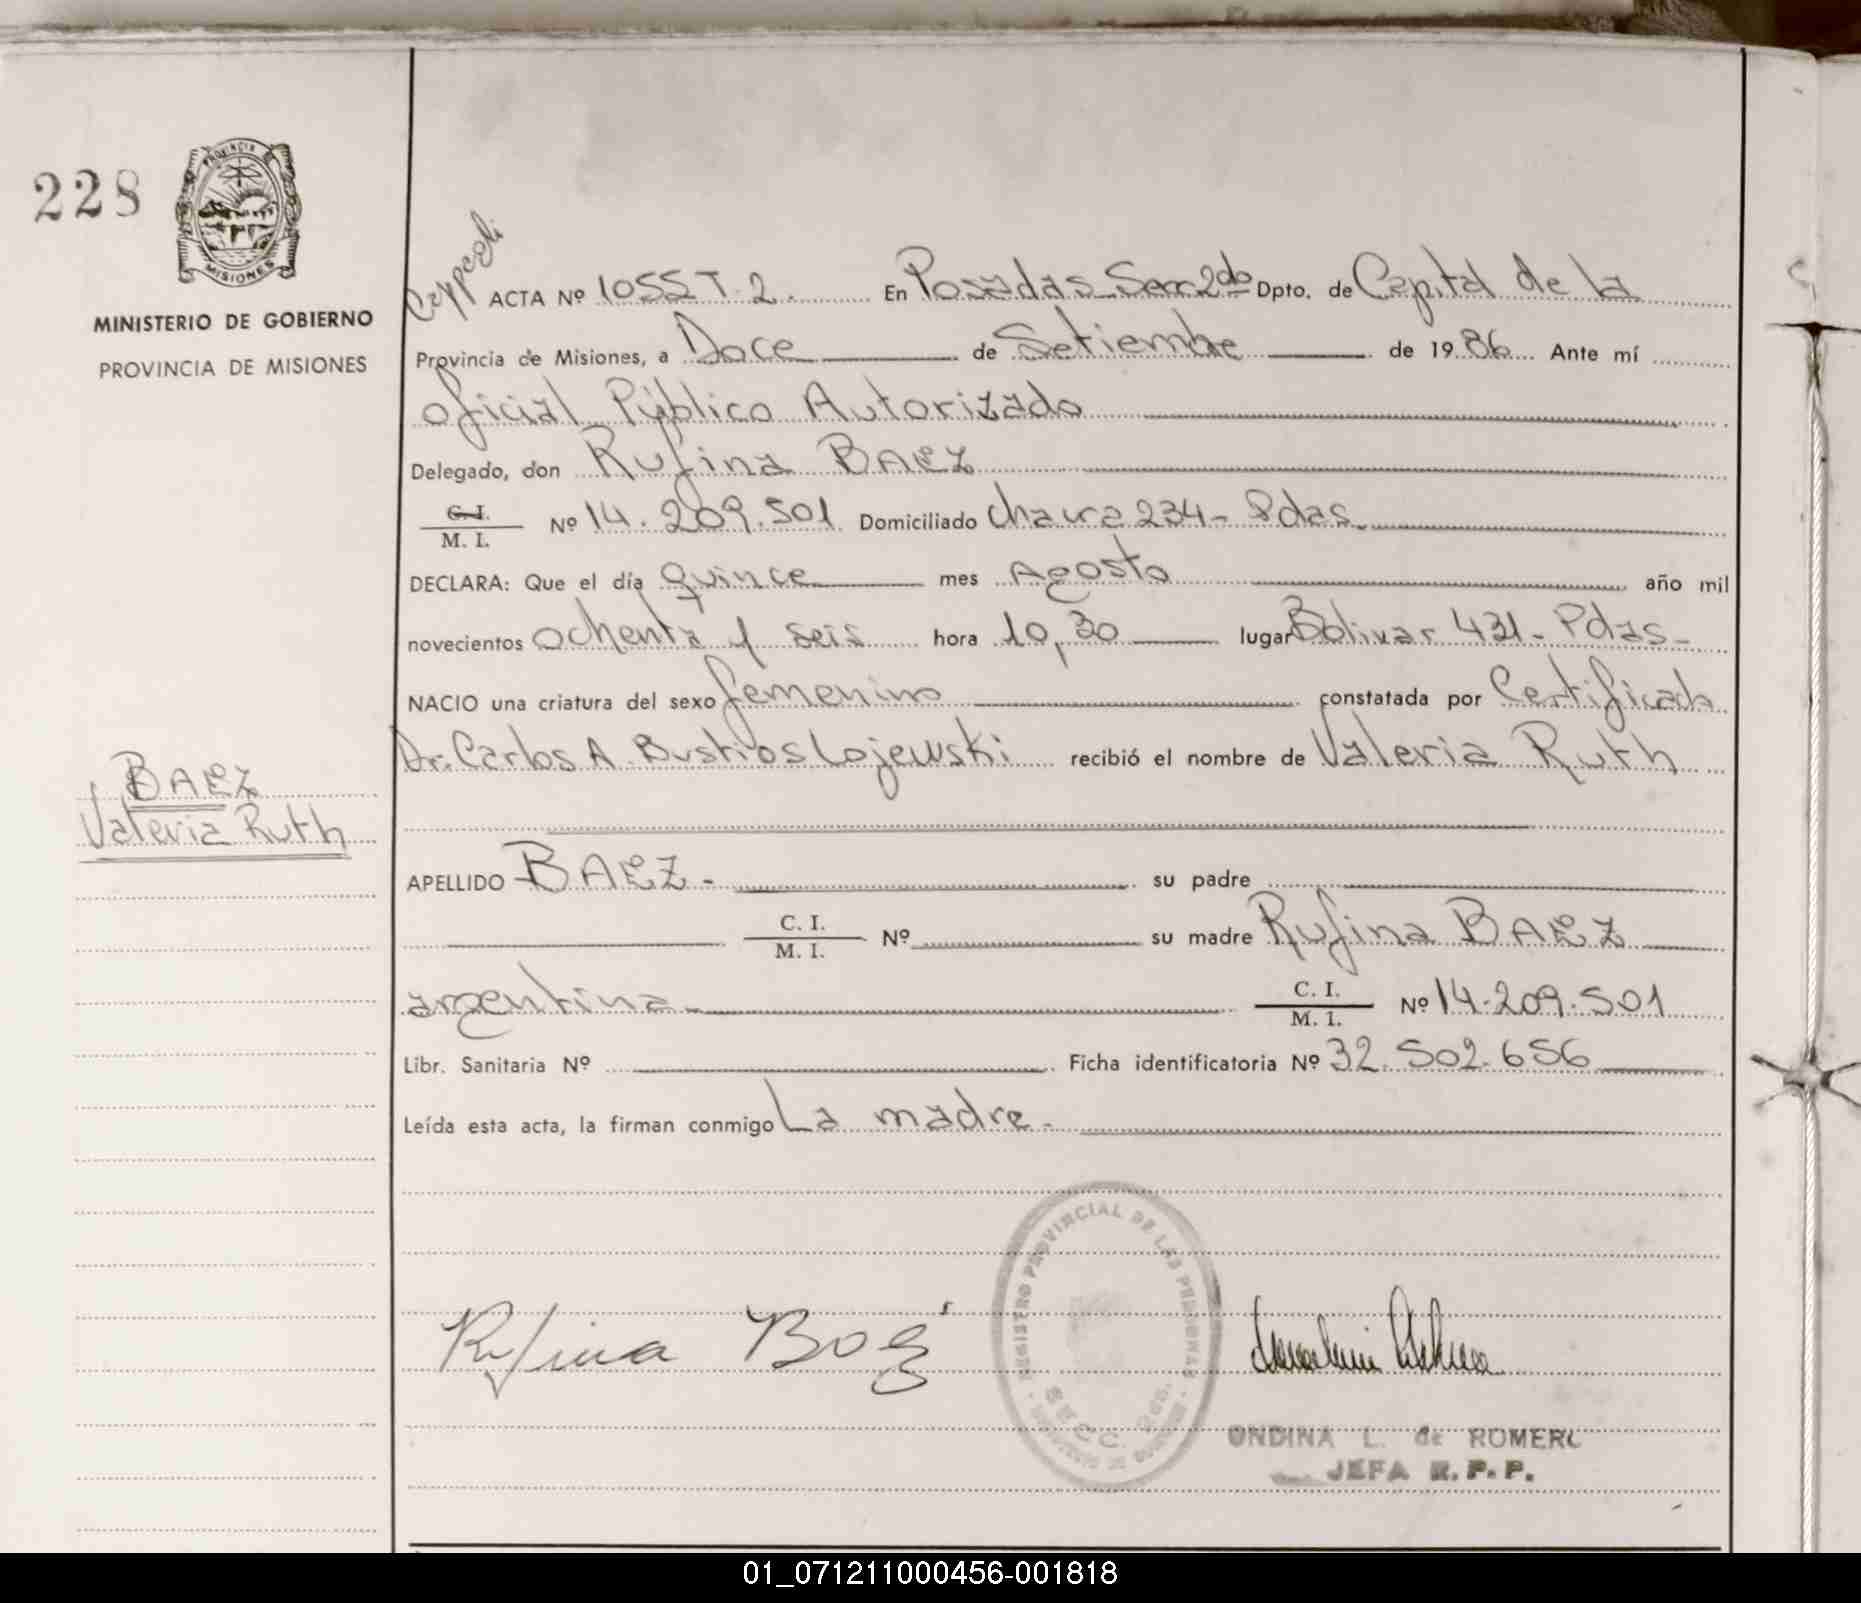 228
PROVINCIA
MISIONES
MINISTERIO DE GOBIERNO
PROVINCIA DE MISIONES
BAEZ
Valeria Ruth
ACTA Nº 1055 T. 2. En Posadas Secc 2do Dpto. de Capital de la
Provincia de Misiones, a Doce de Setiembre de 1986 Ante mí
oficial Público Autorizado
Delegado, don Rufina BAEZ
C. I.
M. I. Nº 14.209.501 Domiciliado 234 - Pdas.
DECLARA: Que el día quince mes Agosto año mil
novecientos ochenta y seis hora 10,30 lugar Bolivar 431 - Pdas -
NACIO una criatura del sexo femenino constatada por Certificado
Dr. Carlos A. Bustios Lojewski recibió el nombre de Valeria Ruth
APELLIDO BAEZ - su padre
C. I.
M. I. Nº su madre Rufina BAEZ
argentina - C. I.
M. I. Nº 14.209.501
Libr. Sanitaria Nº Ficha identificatoria Nº 32.502.656
Leída esta acta, la firman conmigo La madre -
REGISTRO PROVINCIAL DE LAS PERSONAS
SECC. 2da.
Rufina
ONDINA L. de ROMERO
JEFA R. P. P.
01_071211000456-001818